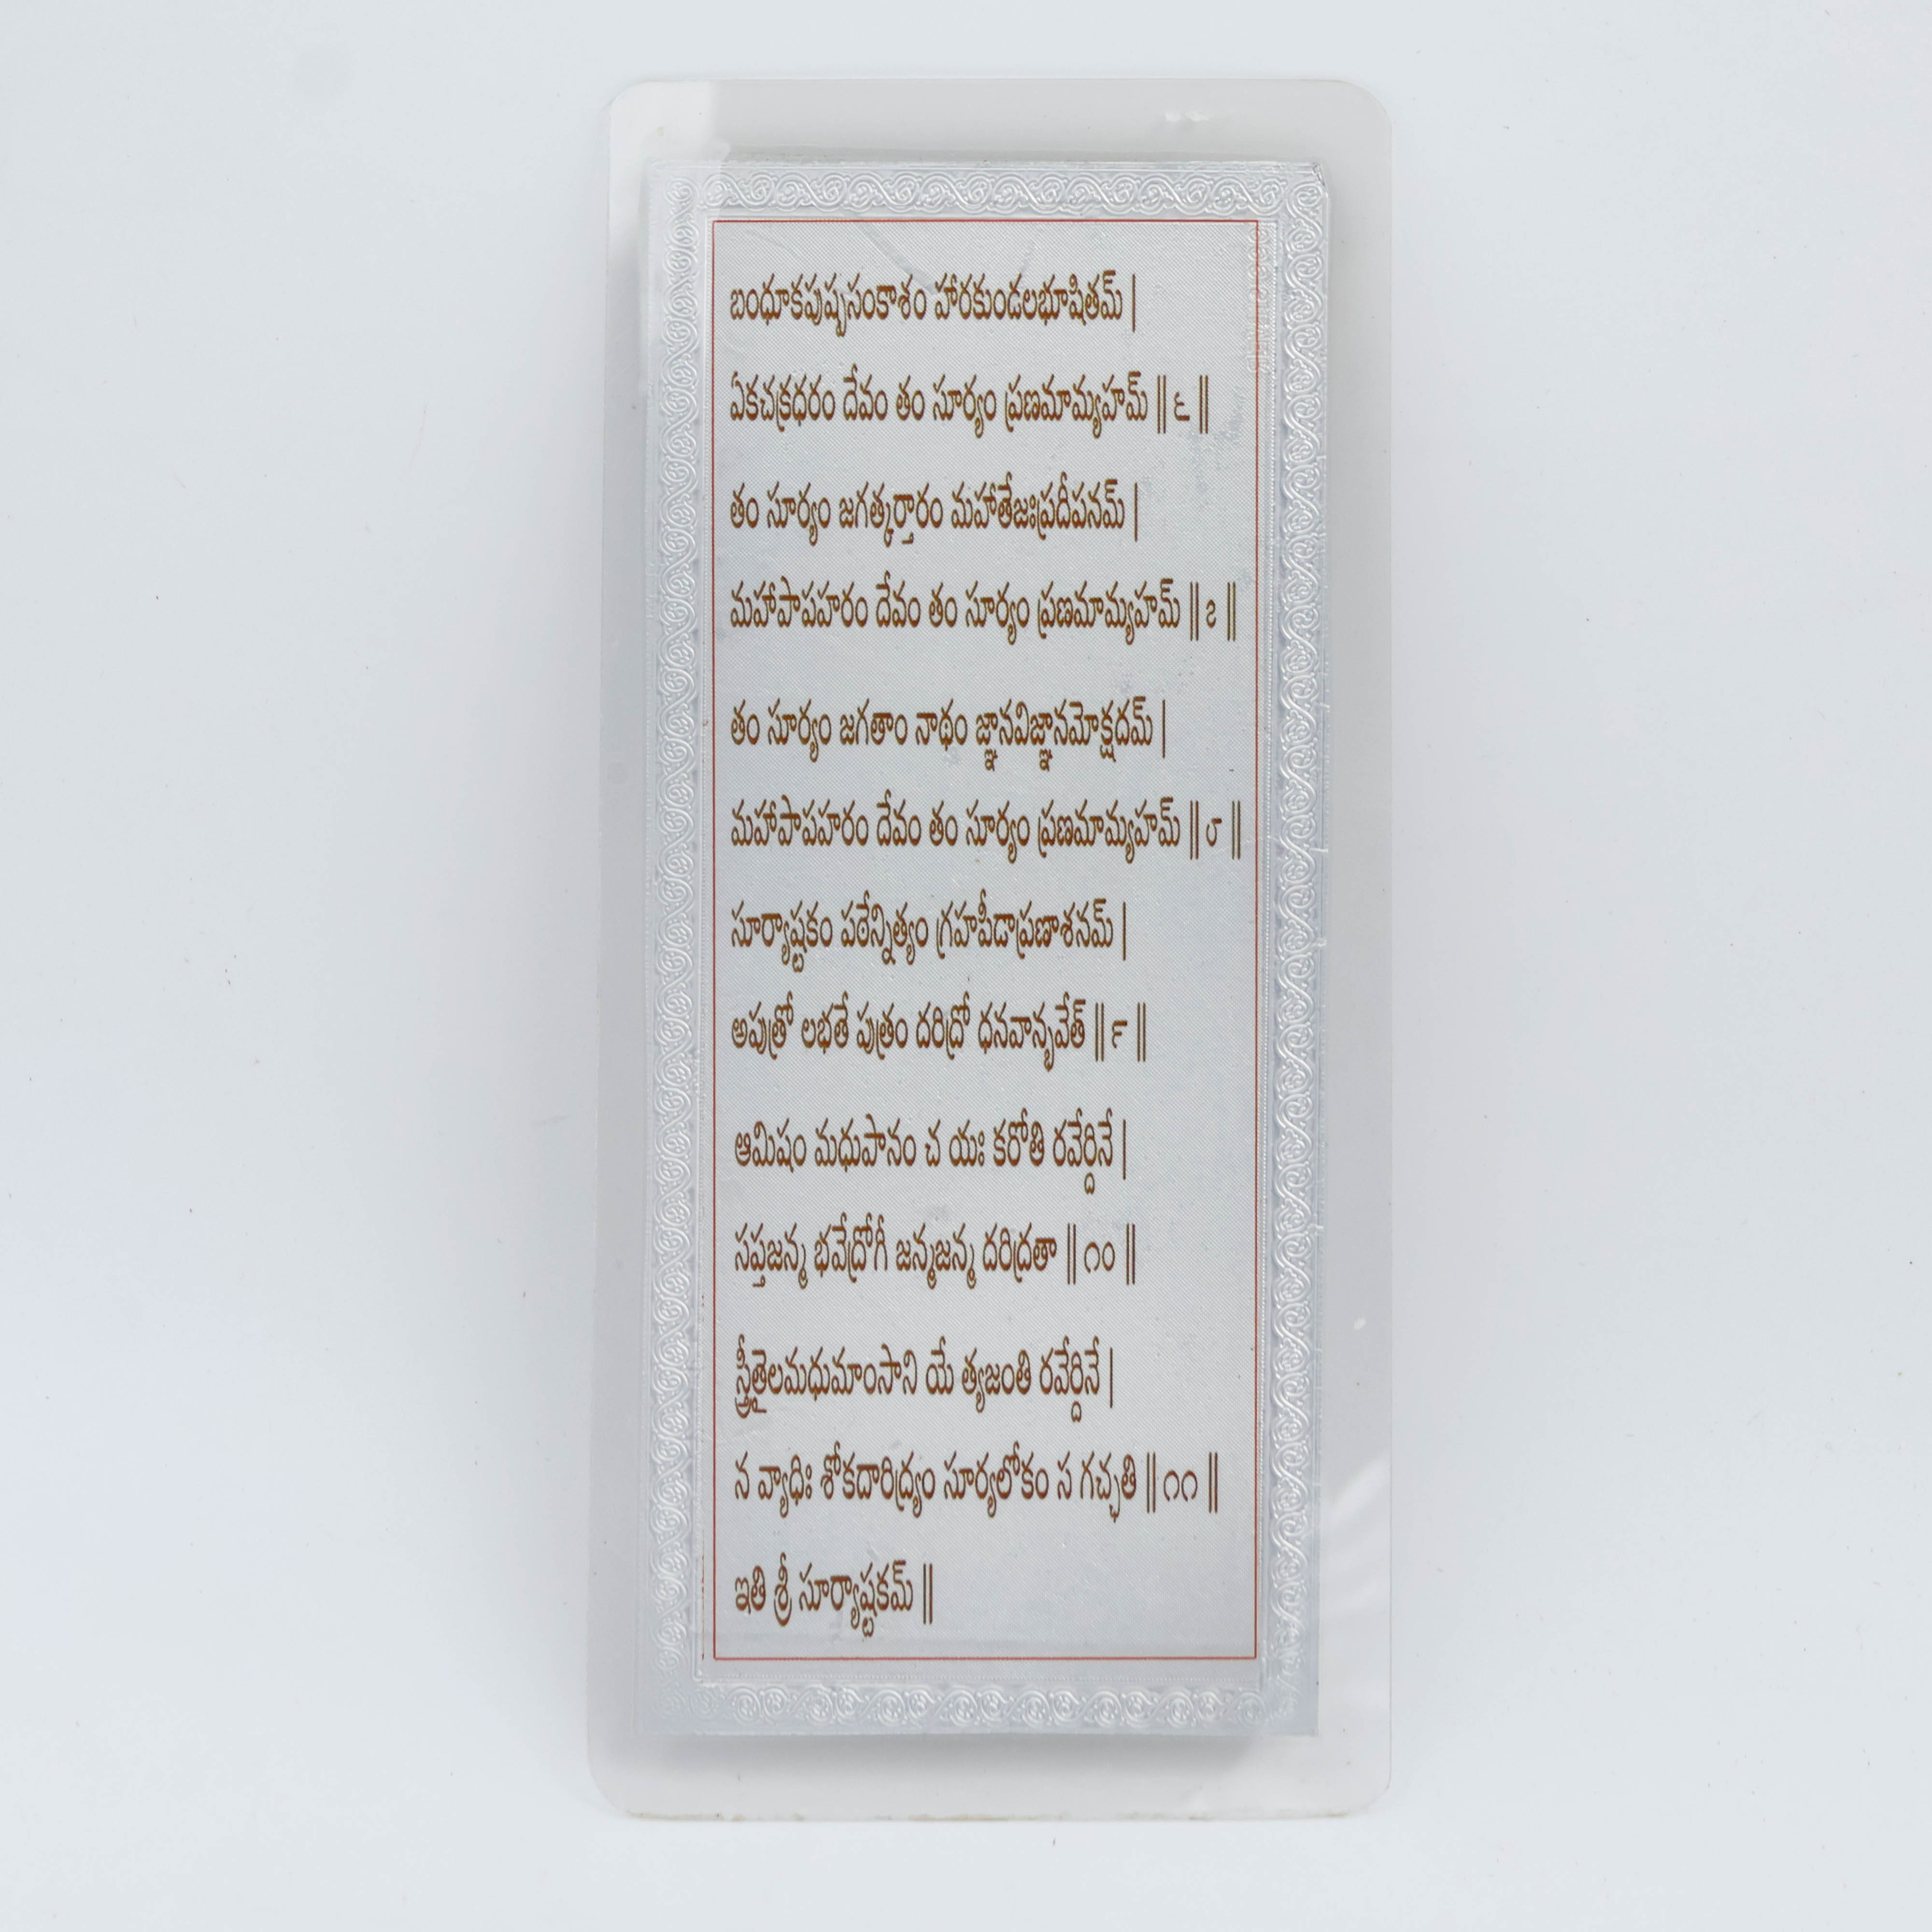 బంధూకపుష్పసంకాశం హారకుండలభూషితమ్ |
ఏకచక్రధరం దేవం తం సూర్యం ప్రణమామ్యహమ్ || ౬ ||
తం సూర్యం జగత్కర్తారం మహాతేజఃప్రదీపనమ్ |
మహాపాపహరం దేవం తం సూర్యం ప్రణమామ్యహమ్ || ౭ ||
తం సూర్యం జగతాం నాథం జ్ఞానవిజ్ఞానమోక్షదమ్ |
మహాపాపహరం దేవం తం సూర్యం ప్రణమామ్యహమ్ || ౮ ||
సూర్యాష్టకం పఠేన్నిత్యం గ్రహపీడాప్రణాశనమ్ |
అపుత్రో లభతే పుత్రం దరిద్రో ధనవాన్భవేత్ || ౯ ||
ఆమిషం మధుపానం చ యః కరోతి రవేర్దినే |
సప్తజన్మ భవేద్రోగీ జన్మజన్మ దరిద్రతా || ౧౦ ||
స్త్రీతైలమధుమాంసాని యే త్యజంతి రవేర్దినే |
న వ్యాధిః శోకదారిద్ర్యం సూర్యలోకం స గచ్ఛతి || ౧౧ ||
ఇతి శ్రీ సూర్యాష్టకమ్ ||